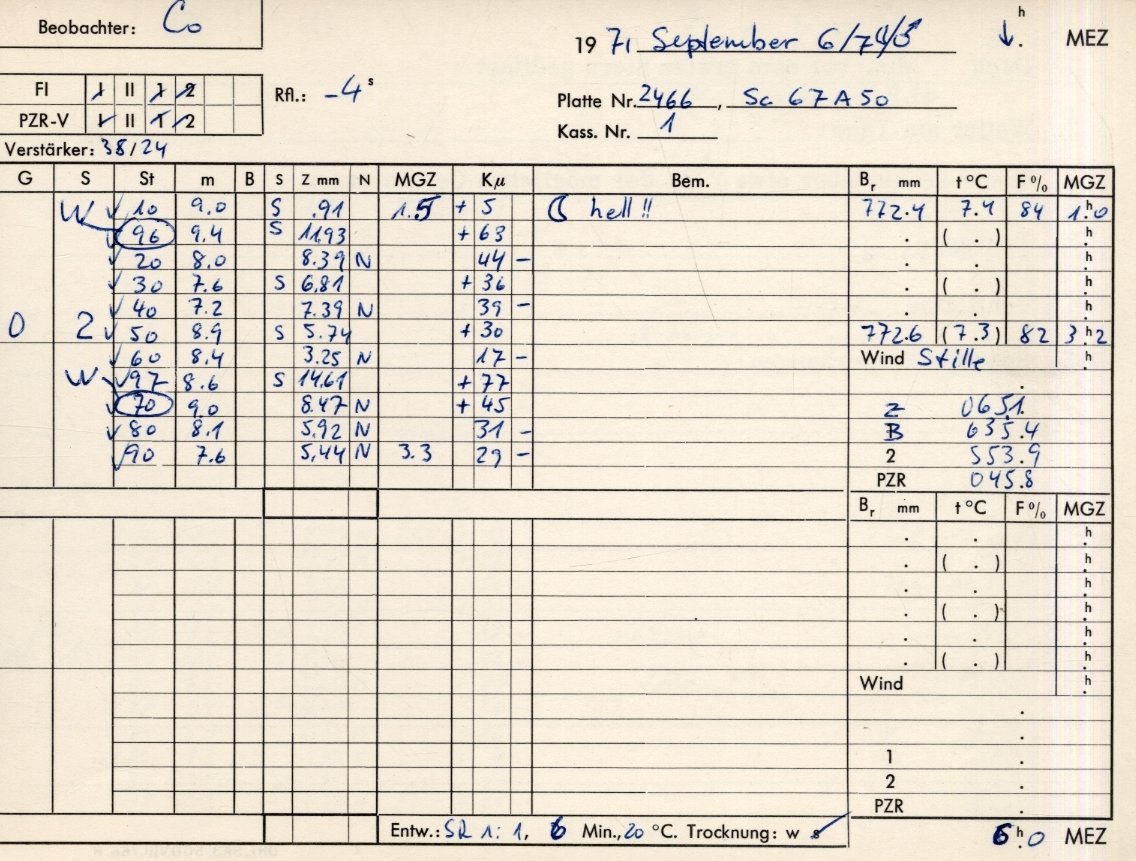 Beobachter: Co
19 71 September 6/7 h . MEZ
FI I II 1 2 Rfl.: -4 s
PZR-V I II 1 2
Platte Nr. 2466, Sc 67 A 50
Kass. Nr. 1
Verstärker: 38/24
G S St m B S Z mm N MGZ Kμ Bem. Br mm t °C F % MGZ
W 10 9.0 S .91 1.5 + 5 hell!! 772.4 7.4 84 1h.0
96 9.4 S 11.93 + 63 . ( . ) h
20 8.0 8.39 N 44 - . . h
30 7.6 S 6.81 + 36 . ( . ) h
40 7.2 7.39 N 39 - . . h
0 2 50 8.9 S 5.74 + 30 772.6 (7.3) 82 3h.2
60 8.4 3.25 N 17 - Wind Stille h
W 97 8.6 S 14.61 + 77 .
70 9.0 8.47 N + 45 Z 065.1
80 8.1 5.92 N 31 - B 635.4
90 7.6 5.44 N 3.3 29 - 2 553.9
PZR 045.8
Br mm t °C F % MGZ
. . h
. ( . ) h
. . h
. ( . ) h
. . h
. ( . ) h
Wind h
.
.
1 .
2 .
PZR .
Entw.: SR 1:1, 6 Min., 20 °C. Trocknung: w s 6h.0 MEZ